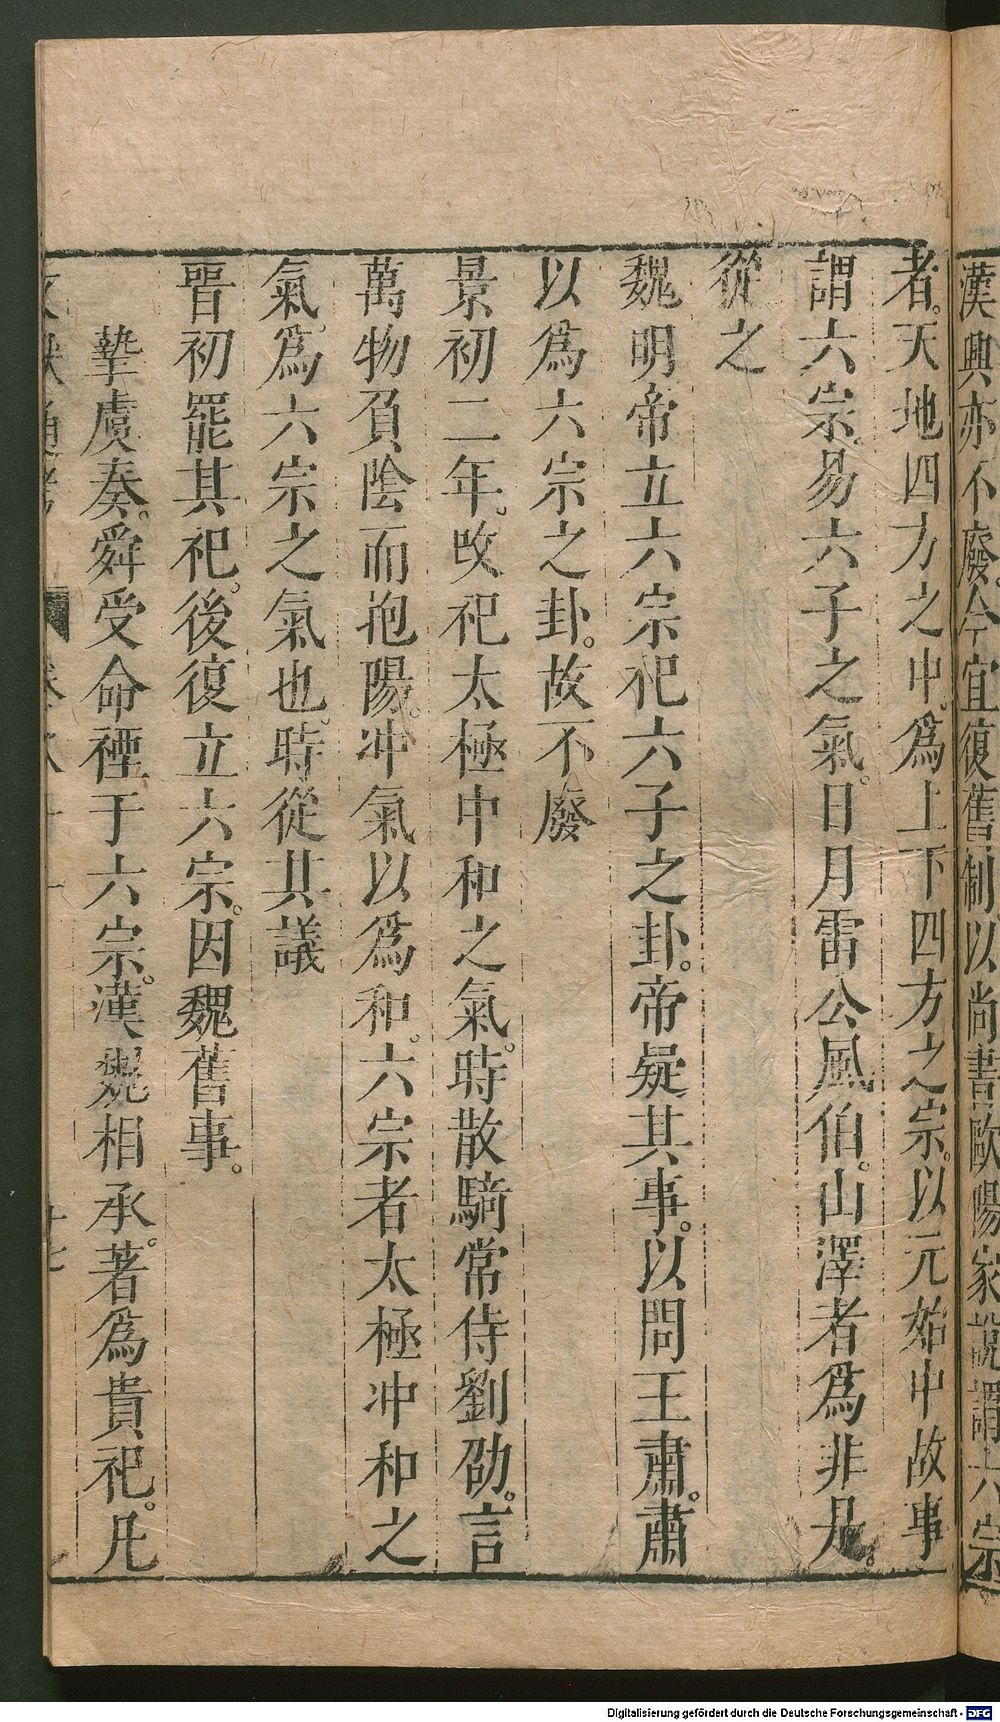 漢興亦不廢今宜復舊制以尚書歐陽家說謂六宗
者。天地四方之中。爲上下四方之宗。以元始中故事
謂六宗。易六子之氣。日月雷公風伯。山澤者爲非是。
從之
魏明帝立六宗祀六子之卦。帝疑其事。以問王肅。肅
以爲六宗之卦。故不廢
景初二年。改祀太極中和之氣。時散騎常侍劉劭。言
萬物負陰而抱陽。冲氣以爲和。六宗者太極冲和之
氣。爲六宗之氣也。時從其議
晋初罷其祀。後復立六宗。因魏舊事。
摯虞奏。舜受命禋于六宗。漢魏相承。著爲貴祀。凡
Digitalisierung gefördert durch die Deutsche Forschungsgemeinschaft - DFG